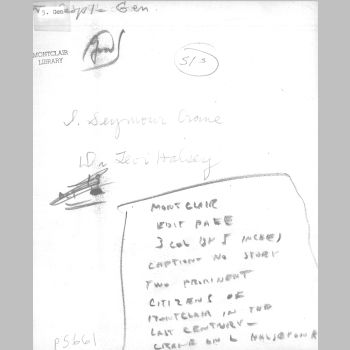 Gen.
MONTCLAIR
LIBRARY
S. Seymour Crane
Dr Levi Halsey
MONTCLAIR
EDIT PAGE
3 COL BY 5 INCHES
CAPTIONS NO STORY
TWO PROMINENT
CITIZENS OF
MONTCLAIR IN THE
LAST CENTURY —
CRANE ON L HALSEY ON R
P5661